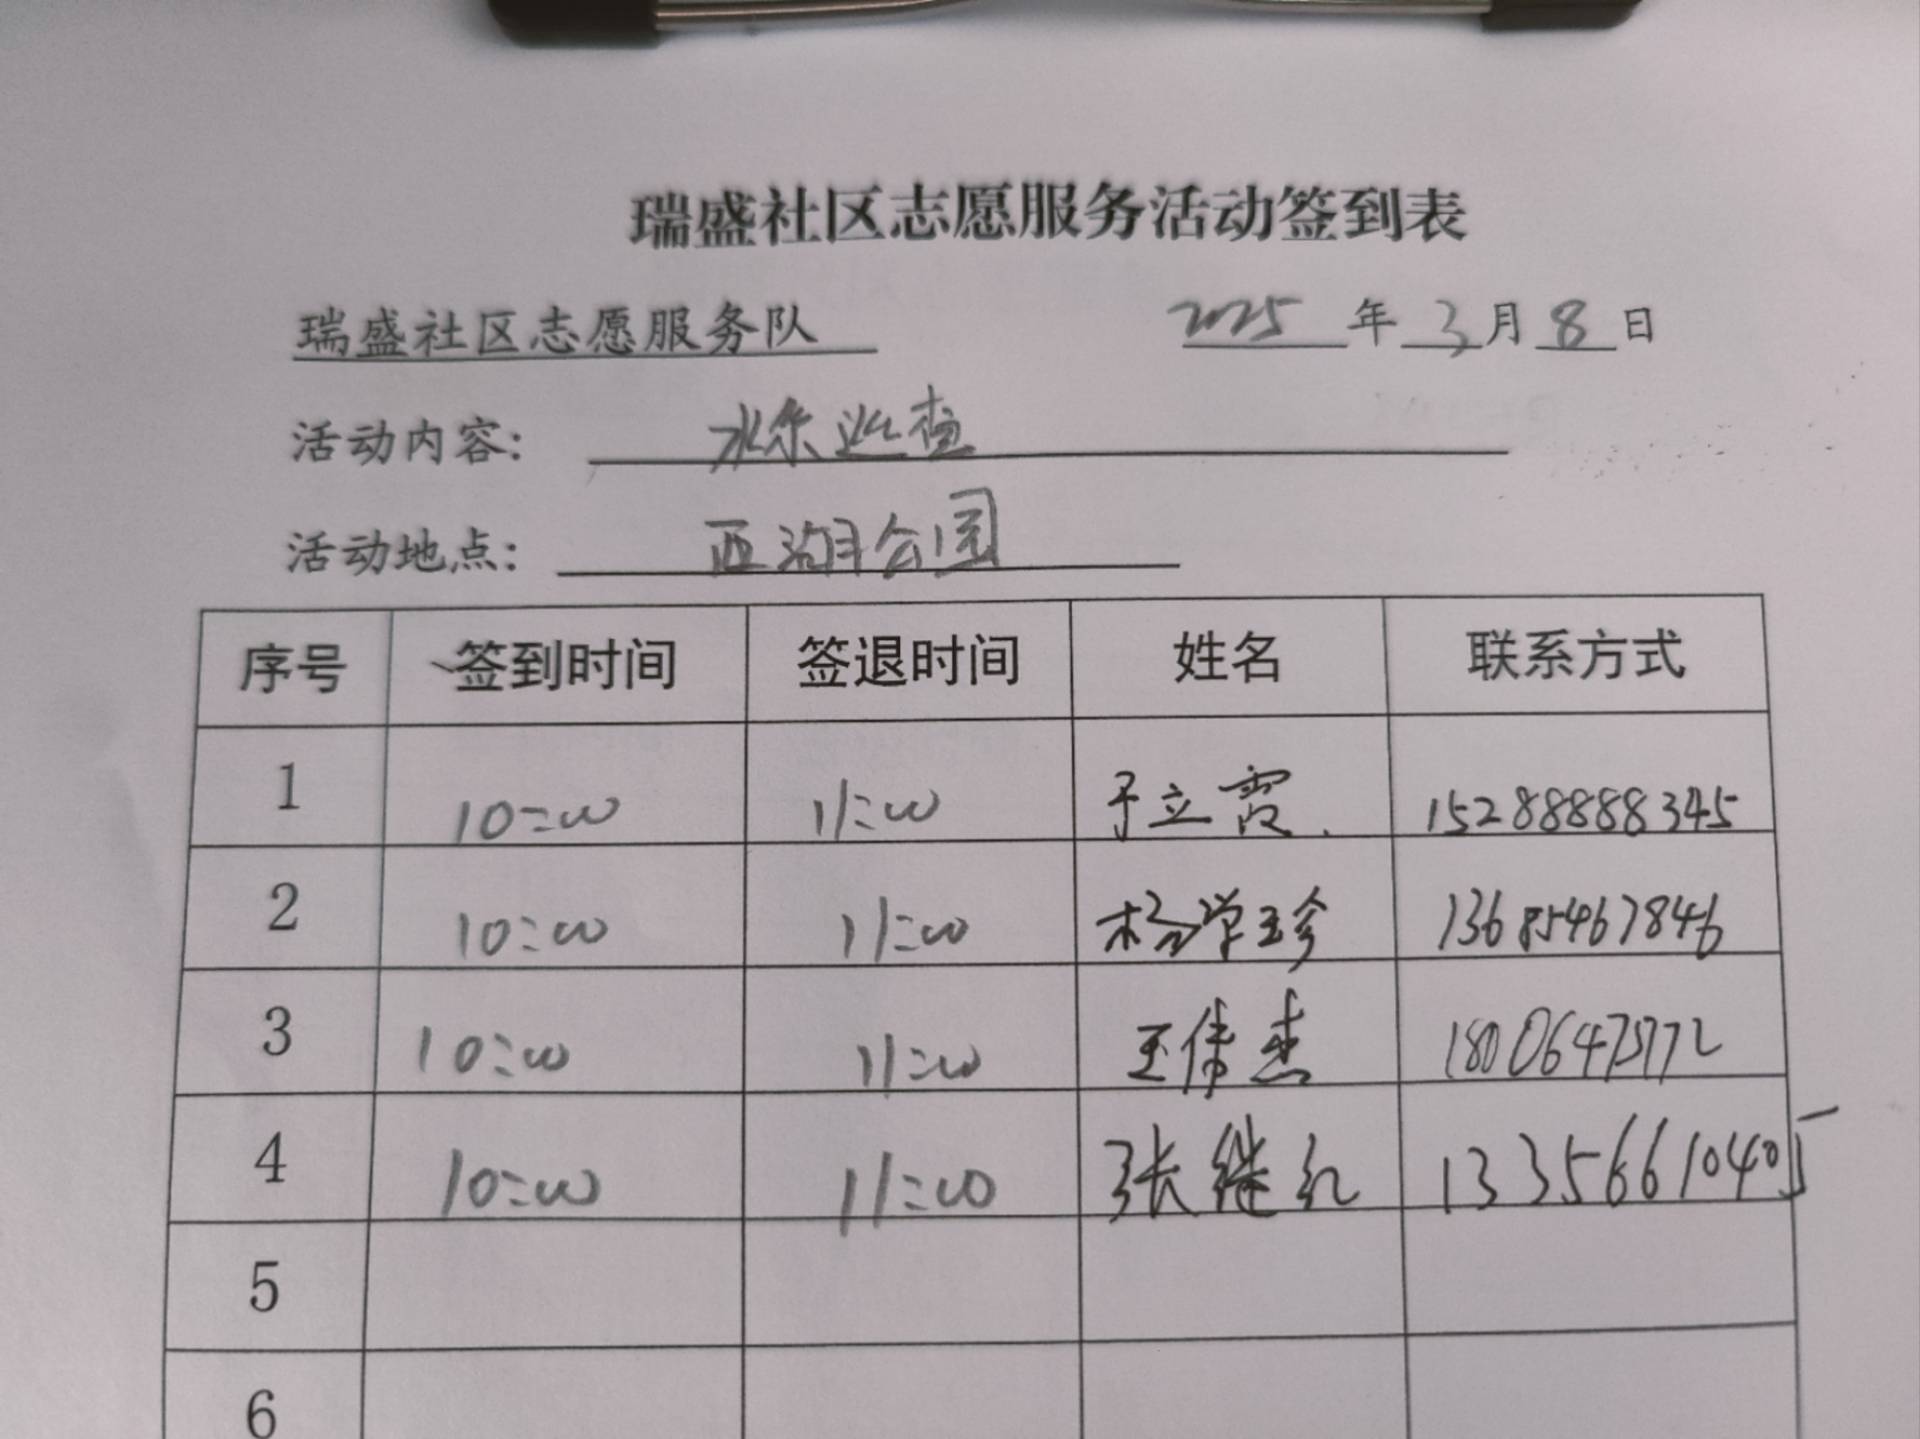 瑞盛社区志愿服务活动签到表
瑞盛社区志愿服务队 2025年3月8日
活动内容: 水系巡查
活动地点: 西湖公园
序号 签到时间 签退时间 姓名 联系方式
1 10:00 11:00 于立霞 15288888345
2 10:00 11:00 杨学珍 13685467846
3 10:00 11:00 王伟杰
4 10:00 11:00 张继红 13356610405
5
6